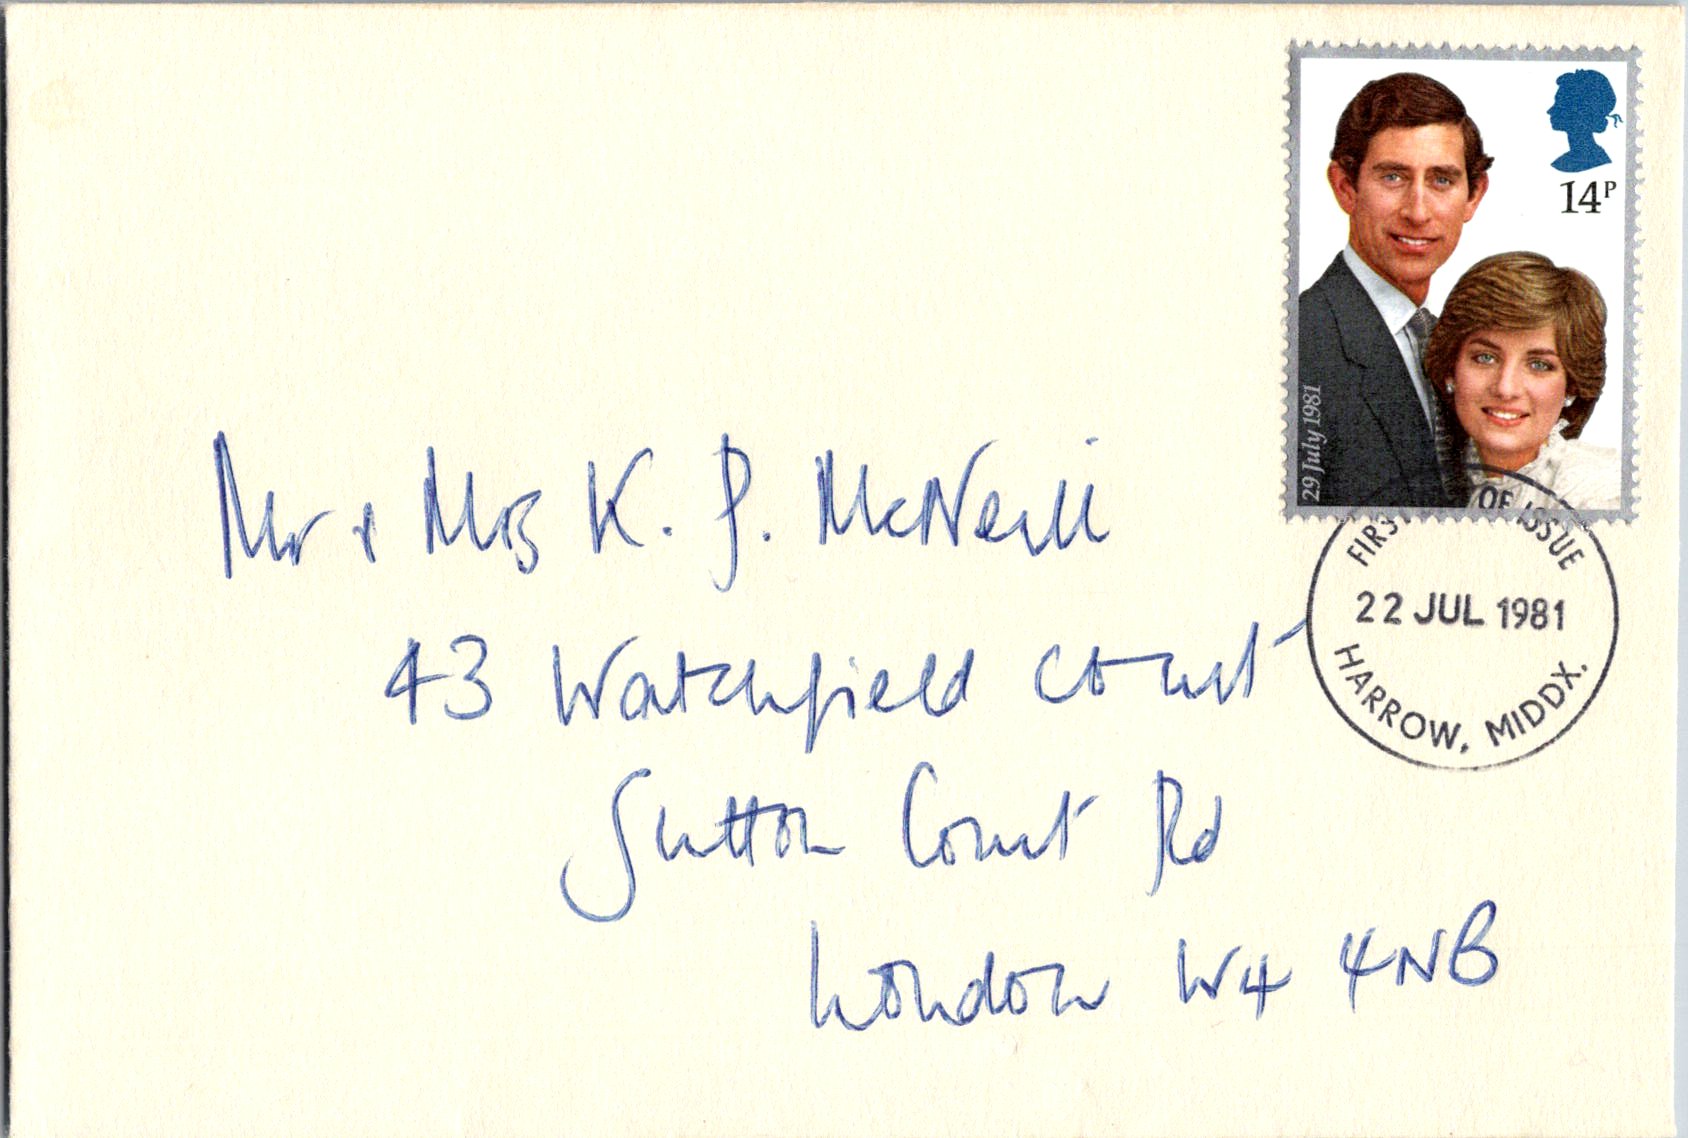 14P
29 July 1981
FIRST DAY OF ISSUE
22 JUL 1981
HARROW, MIDDX.
Mr + Mrs K. J. McNeill
43 Watchfield Court
Sutton Court Rd
London W4 4NB